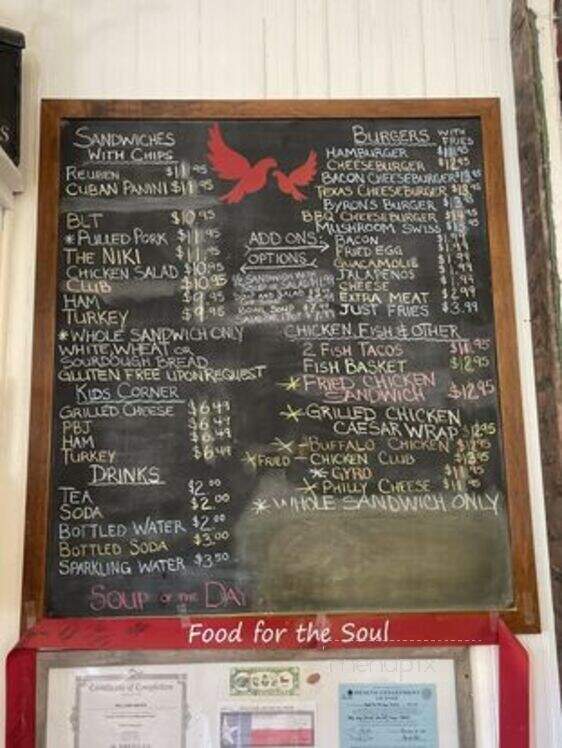 SANDWICHES
WITH CHIPS
REUBEN $11.95
CUBAN PANINI $11.95
BLT $10.95
*PULLED PORK $11.95
THE NIKI $11.95
CHICKEN SALAD $10.95
CLUB $10.95
HAM $9.95
TURKEY $9.95
*WHOLE SANDWICH ONLY
WHITE, WHEAT OR
SOURDOUGH BREAD
GLUTEN FREE UPON REQUEST
KIDS CORNER
GRILLED CHEESE $6.49
PBJ $6.49
HAM $6.49
TURKEY $6.49
DRINKS
TEA $2.00
SODA $2.00
BOTTLED WATER $2.00
BOTTLED SODA $3.00
SPARKLING WATER $3.50
SOUP OF THE DAY
ADD ONS:
OPTIONS
BURGERS WITH FRIES
HAMBURGER
CHEESEBURGER $12.95
BACON CHEESEBURGER
TEXAS CHEESEBURGER
BYRON'S BURGER
BBQ CHEESEBURGER
MUSHROOM SWISS
BACON
FRIED EGG
GUACAMOLE
JALAPENOS
CHEESE
EXTRA MEAT $2.99
JUST FRIES $3.99
CHICKEN, FISH & OTHER
2 FISH TACOS
FISH BASKET $12.95
*FRIED CHICKEN
SANDWICH $12.95
*GRILLED CHICKEN
CAESAR WRAP $12.95
*BUFFALO CHICKEN $12.95
*FRIED - CHICKEN CLUB
*GYRO
*PHILLY CHEESE
*WHOLE SANDWICH ONLY
Food for the Soul
menupix
Certificate of Completion
HEALTH DEPARTMENT